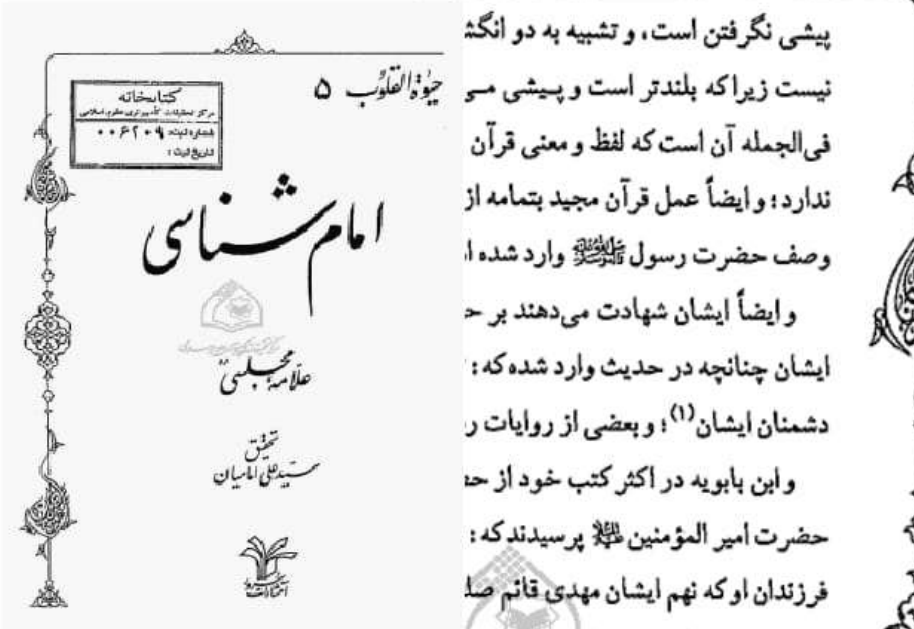 حیوة القلوب ۵
کتابخانه
مرکز تحقیقات کامپیوتری علوم اسلامی
شماره ثبت: ۰۰۶۲۰۹
تاریخ ثبت:
امام شناسی
علامه مجلسی
تحقیق
سید علی امامیان
انتشارات سرور
پیشی نگرفتن است، و تشبیه به دو انگش
نیست زیرا که بلندتر است و پیشی می
فی‌الجمله آن است که لفظ و معنی قرآن
ندارد؛ و ایضاً عمل قرآن مجید بتمامه از
وصف حضرت رسول ﷺ وارد شده ا
و ایضاً ایشان شهادت می‌دهند بر ح
ایشان چنانچه در حدیث وارد شده که:
دشمنان ایشان(۱)؛ و بعضی از روایات ر
و ابن بابویه در اکثر کتب خود از حض
حضرت امیر المؤمنین علیه السلام پرسیدند که:
فرزندان او که نهم ایشان مهدی قائم صل